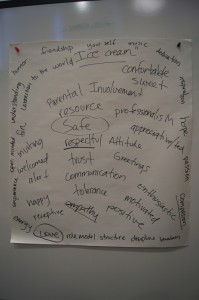 friendship your self music
humor to the world Ice cream dedication
connection comfortable
understanding sweet inspiration
Parental Involvement hope
resource professionalism
fun Safe appreciative/ed
making respectful Attitude passion
welcomed trust Greetings
alert communication compassion
happy tolerance enthusiastic
receptive empathy motivated
positive
energy Love role model structure discipline boundaries